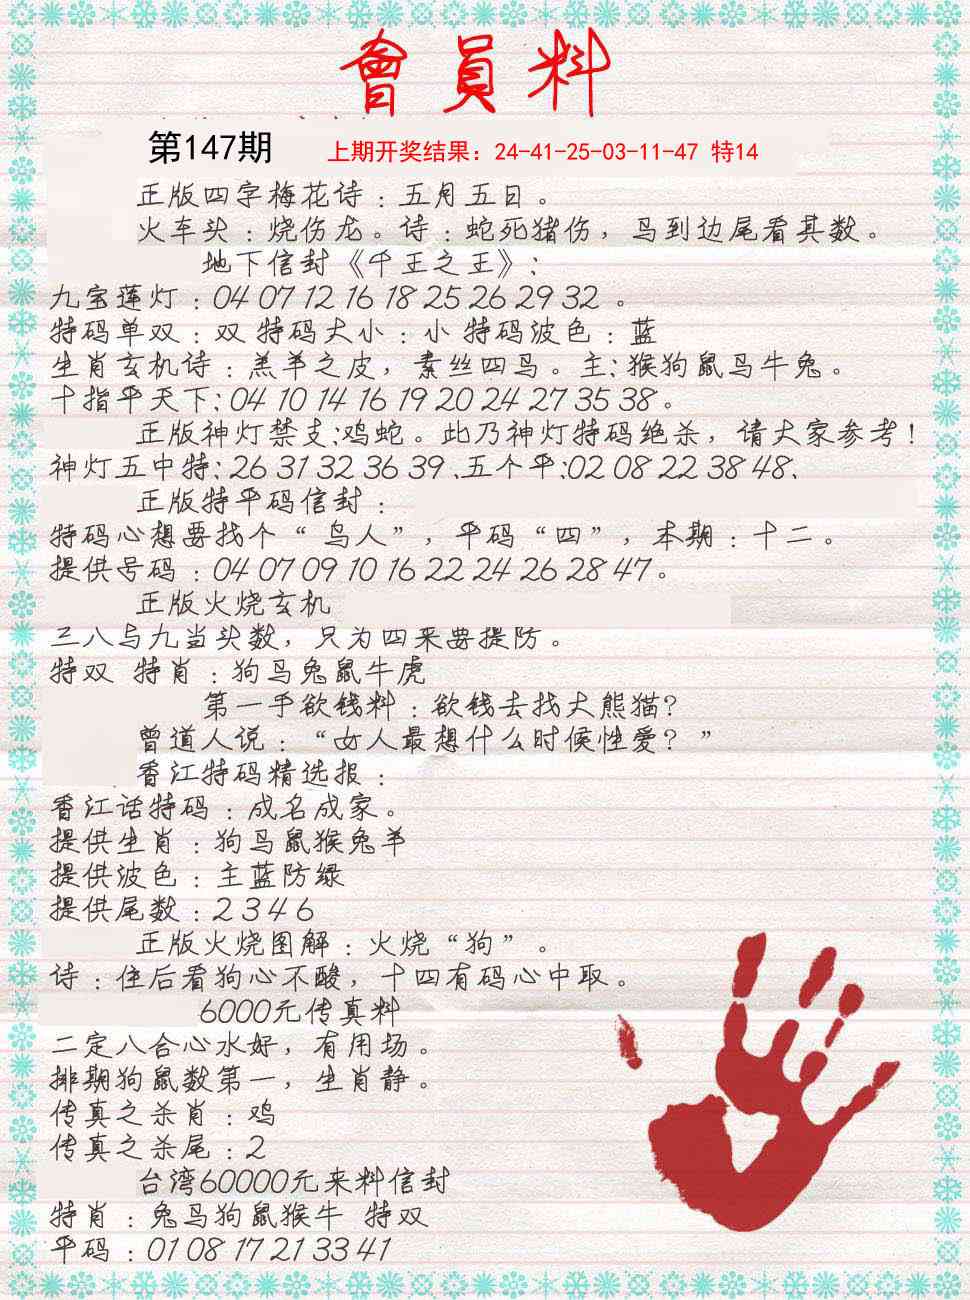 會員料
第147期 上期开奖结果：24-41-25-03-11-47 特14
正版四字梅花诗：五月五日。
火车头：烧伤龙。诗：蛇死猪伤，马到边尾看其数。
地下信封《千王之王》：
九宝莲灯：04 07 12 16 18 25 26 29 32 。
特码单双：双 特码大小：小 特码波色：蓝
生肖玄机诗：羔羊之皮，素丝四马。主：猴狗鼠马牛兔。
十指平天下：04 10 14 16 19 20 24 27 35 38。
正版神灯禁支：鸡蛇。此乃神灯特码绝杀，请大家参考！
神灯五中特：26 31 32 36 39 、五个平：02 08 22 38 48、
正版特平码信封：
特码心想要找个“ 鸟人”，平码“四”，本期：十二。
提供号码：04 07 09 10 16 22 24 26 28 47。
正版火烧玄机
三八与九当头数，只为四来要提防。
特双 特肖：狗马兔鼠牛虎
第一手欲钱料：欲钱去找大熊猫？
曾道人说：“女人最想什么时候性爱？”
香江特码精选报：
香江话特码：成名成家。
提供生肖：狗马鼠猴兔羊
提供波色：主蓝防绿
提供尾数：2 3 4 6
正版火烧图解：火烧“狗”。
诗：住后看狗心不酸，十四有码心中取。
6000元传真料
二定八合心水好，有用场。
排期狗鼠数第一，生肖静。
传真之杀肖：鸡
传真之杀尾：2
台湾60000元来料信封
特肖：兔马狗鼠猴牛 特双
平码：01 08 17 21 33 41